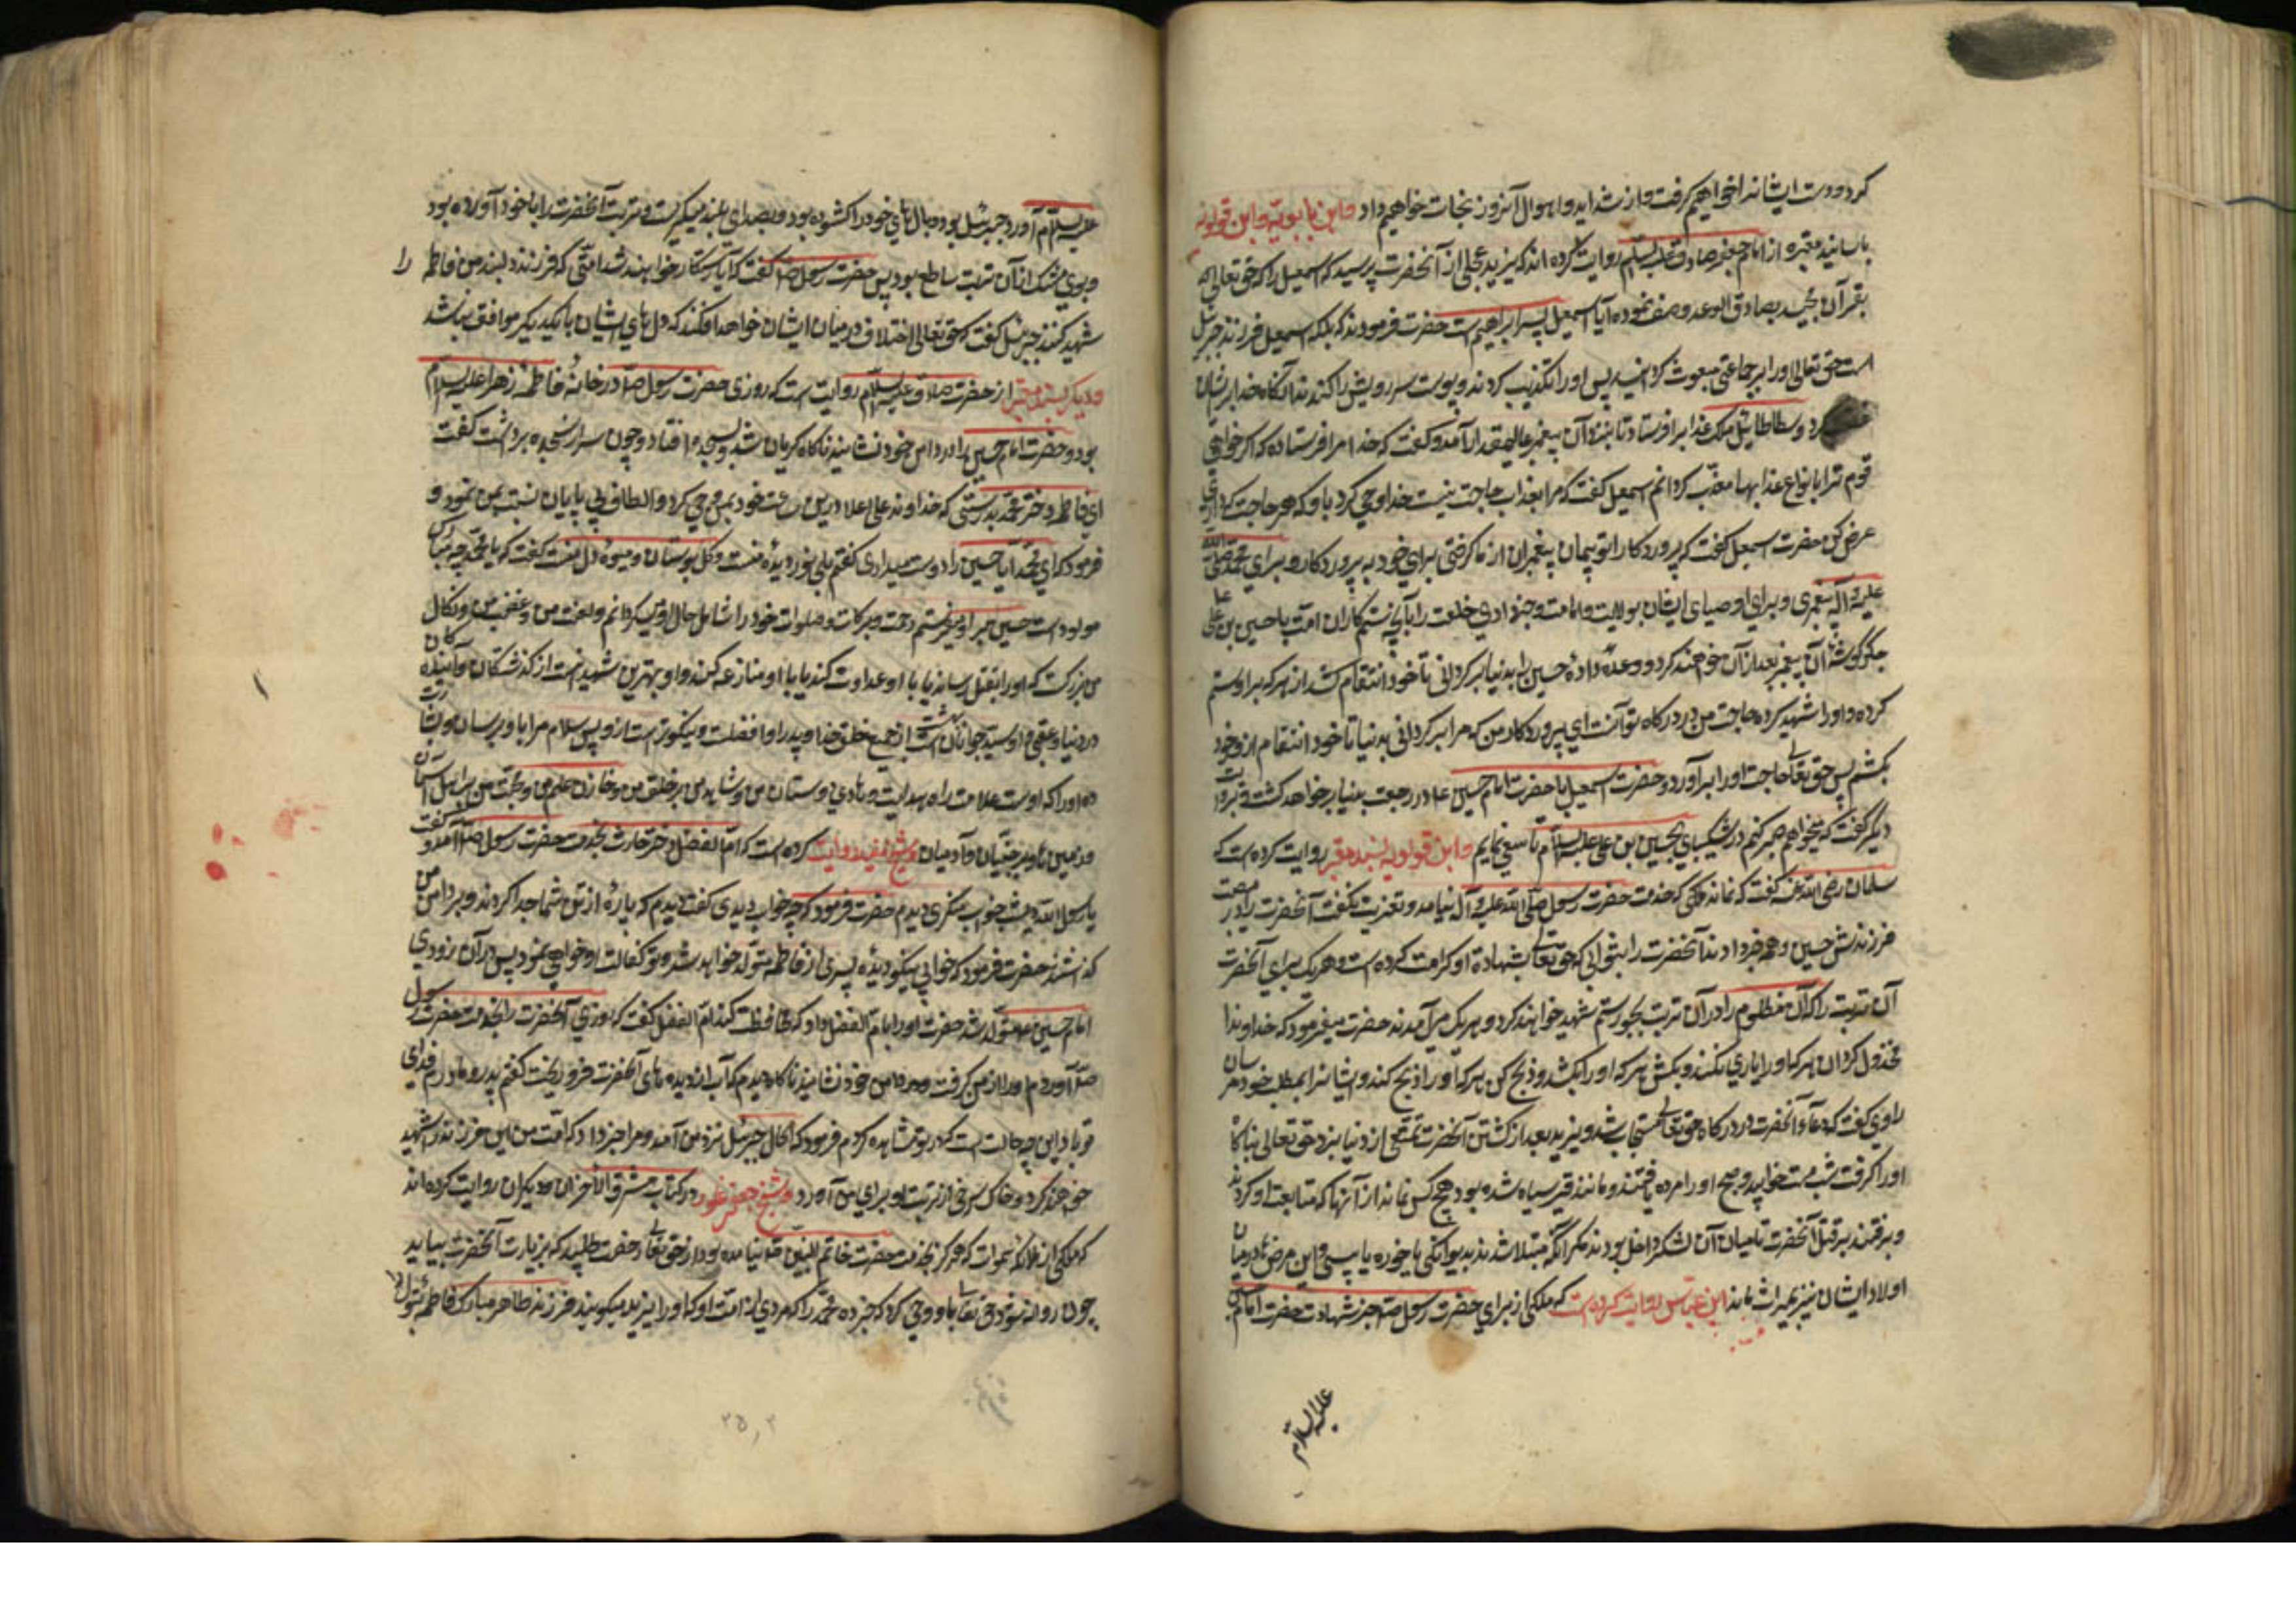 کرد و دست ایشانرا خواهیم گرفت و از شداید و اهوال آنروز نجات خواهیم داد و ابن بابویه و ابن قولویه
باسانید معتبره از امام جعفر صادق علیه السلام روایت کرده اند که یزید عجلی از آنحضرت پرسید که اسمعیل را که حق تعالی
بقرآن مجید بصادق الوعد وصف نموده آیا اسمعیل پسر ابراهیم است حضرت فرمودند که بلکه اسمعیل فرزند حزقیل
است حق تعالی او را بر جماعتی مبعوث گردانید پس او را تکذیب کردند و پوست سر و رویش را کندند آنگاه خدا برایشان
کرد و سطاطائیل ملک عذابرا فرستاد تا بنزد آن پیغمبر عالیمقدار آمد و گفت که خدا مرا فرستاده که اگر خواهی
قوم ترا بانواع عذابها معذب گردانم اسمعیل گفت که مرا بعذاب حاجت نیست خدا وحی کرد باو که هر حاجت که داری
عرض کن حضرت اسمعیل گفت که پروردگارا تو پیمان پیغمبران از ما گرفتی برای خود به پروردگاری و برای محمد صلی الله
علیه و آله به پیغمبری و برای اوصیای ایشان بولایت و امامت و خبر دادی خلقت را بآنچه ستمکاران امت با حسین بن علی
جگرگوشه آن پیغمبر بعد از آن خواهند کرد و وعده داده حسین را بدنیا برگردانی تا خود انتقام کشد از هر که بر او ستم
کرده و او را شهید کرده حاجت من در درگاه تو آنست ای پروردگار من که مرا برگردانی بدنیا تا خود انتقام از قوم خود
بکشم پس حق تعالی حاجت او را برآورد و حضرت اسمعیل با حضرت امام حسین ع در رجعت بدنیا بر خواهد گشت و بروایت
دیگر گفت که میخواهم صبر کنم در شکیبایی بحسین بن علی علیه السلام تاسی نمایم و ابن قولویه بسند معتبر روایت کرده است که
سلمان رضی الله عنه گفت که نماند ملکی که خدمت حضرت رسول صلی الله علیه و آله نیامد و تعزیت نگفت آنحضرت را در مصیبت
فرزندش حسین و همه خبر دادند آنحضرت را بثوابی که حق تعالی بشهادة او کرامت کرده است و هر یک برای آنحضرت
آن تربت را که آن مظلوم را در آن تربت بجور و ستم شهید خواهند کرد و هر یک می آمدند حضرت میفرمود که خداوندا
مخذول گردان هر که او را یاری نکند و بکش هر که او را بکشد و ذبح کن هر که او را ذبح کند و ایشانرا بمطلب خود مرسان
راوی گفت که دعاء آنحضرت در درگاه حق تعالی مستجاب شد و یزید بعد از کشتن آنحضرت تمتعی از دنیا نبرد حق تعالی بناگاه
او را گرفت شب مست خوابید و صبح او را مرده یافتند و مانند قیر سیاه شده بود هیچ کس نماند از آنها که متابعت او کردند
و برفتند بر قتل آنحضرت تا میان آن لشکر داخل بودند مگر آنکه مبتلا شدند بدیوانگی یا خوره یا پیسی و این مرضها در میان
اولاد ایشان نیز بمیراث بماند ابن عباس روایت کرده است که ملکی از برای حضرت رسول ص خبر شهادت حضرت امام حسین
علیه السلام
علیه السلام آورد جبرئیل بود و بال های خود را گشوده بود و بصدای بلند میگریست و تربت آنحضرت را با خود آورده بود
و بوی مشک از آن تربت ساطع بود پس حضرت رسول ص گفت که آیا رستگار خواهند شد امتی که فرزند دلبند من فاطمه را
شهید کنند جبرئیل گفت که حق تعالی اختلاف در میان ایشان خواهد افکند که دل های ایشان با یکدیگر موافق نباشد
و دیگر بسند معتبر از حضرت صادق علیه السلام روایت است که روزی حضرت رسول ص در خانه فاطمه زهرا علیه السلام
بود و حضرت امام حسین را در دامن خود نشانید ناگاه گریان شد و بسجده افتاد و چون سر از سجده برداشت گفت
ای فاطمه دختر محمد بدرستی که خداوند علی اعلا درین ساعت خود بمن وحی کرد و الطاف بی پایان نسبت بمن نمود و
فرمود که ای محمد آیا حسین را دوست میداری گفتم بلی نور دیده منست و گل بوستان و میوه دل منست گفت که یا محمد چه مبارک
مولود است حسین میفرستم رحمت و برکات و صلوات خود را شامل حال او می گردانم و لعنت من و غضب من و نکال
من بر کسی است که او را بقتل رساند یا با او عداوت کند یا با او منازعه کند و او بهترین شهیدانست از گذشتگان و آیندگان
در دنیا و عقبی و او سید جوانان بهشت است از جمیع خلق خدا و پدر او افضلست و نیکوتر است از و پس سلام مرا باو برسان و بشارت
ده او را که اوست علامت راه هدایت و هادی دوستان من و شاهد من بر خلق من و خازن علم من و حجت من بر اهل آسمان
و زمین ها و بر جنیان و آدمیان و شیخ مفید روایت کرده است که ام الفضل دختر حارث بخدمت حضرت رسول ص آمد و گفت
یا رسول الله دیشب خواب منکری دیدم حضرت فرمود که چه خواب دیدی گفت دیدم که پاره از تن شما جدا کردند و بر دامن من
گذاشتند حضرت فرمود که خوابی نیکو دیده پسری از فاطمه متولد خواهد شد و تو کفالت او خواهی نمود پس در آن بزودی
امام حسین ع متولد شد حضرت او را بام الفضل داد که محافظت کند ام الفضل گفت که روزی آنحضرت را بخدمت حضرت رسول
ص آوردم او را از من گرفت و در دامن خود نشانید ناگاه دیدم که آب از دیده های آنحضرت فرو ریخت گفتم پدر و مادرم فدای
تو باد این چه حالت است که در تو مشاهده کردم فرمود که الحال جبرئیل نزد من آمد و مرا خبر داد که امت من این فرزند را شهید
خواهند کرد و خاک سرخی از تربت او برای من آورد و شیخ جعفر در کتاب مشرق الاحزان و دیگران روایت کرده اند
که ملکی از ملائکه سموات که هرگز بخدمت حضرت خاتم النبیین ص نیامده بود از حق تعالی رخصت طلبید که بزیارت آنحضرت بیاید
چون روانه شد حق تعالی باو وحی کرد که خبر ده محمد را که مردی از امت او که او را یزید میگویند فرزند طاهر مبارک فاطمه بتول را
۲۵۲